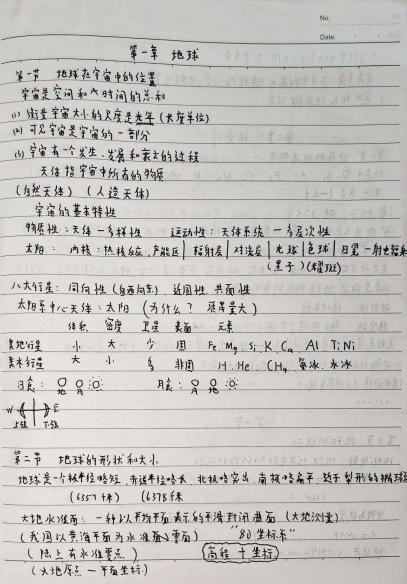 No.
Date.
第一章 地球
第一节 地球在宇宙中的位置
宇宙是空间和时间的总和
(1) 衡量宇宙大小的尺度是光年 (长度单位)
(2) 可见宇宙是宇宙的一部分
(3) 宇宙有一个发生、发展和衰亡的过程
天体指宇宙中所有的物质
(自然天体) (人造天体)
宇宙的基本特性
物质性:天体—多样性 运动性:天体系统—多层次性
太阳: 内核:热核反应,产能区 | 辐射层 | 对流层 | 光球 | 色球 | 日冕—射电辐射
(黑子) (耀斑)
八大行星: 同向性 (自西向东) 近圆性 共面性
太阳系中心天体:太阳 (为什么? 质量大)
体积 密度 卫星 表面 元素
类地行星 小 大 少 固 Fe、Mg、Si、K、Ca、Al、Ti、Ni
类木行星 大 小 多 非固 H、He、CH4、氨冰、水冰
日食: 日 地 月食:
W E
上弦 下弦
第二节 地球的形状和大小
地球是一个极半径略短,赤道半径略长,北极略突出,南极略扁平,近于梨形的椭球体
(6357千米) (6378千米)
大地水准面:一种以平均海平面表示的平滑封闭曲面 (大地测量)
(我国以黄海平面为水准面、零面) "80坐标系"
(陆上有水准零点) 高程+坐标
(大地原点—平面坐标)